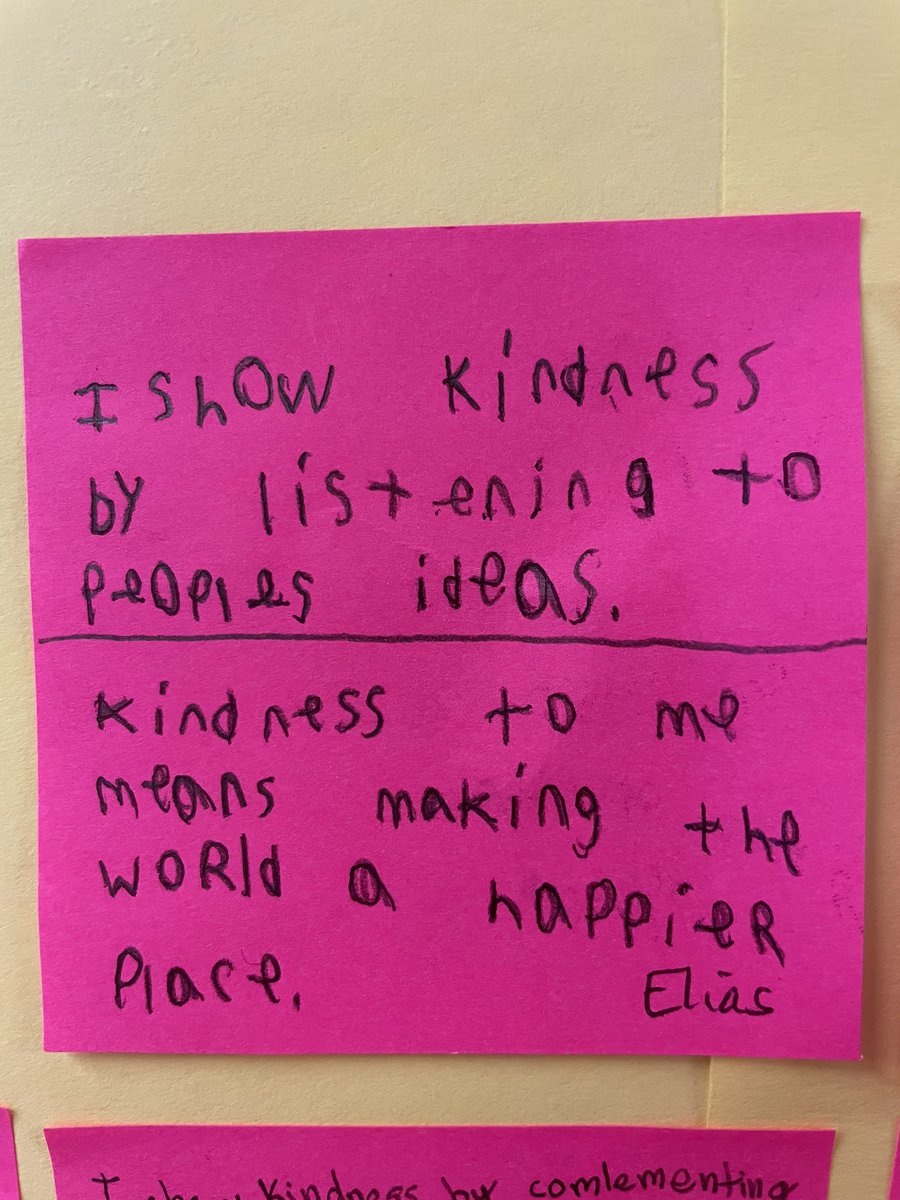 I show kindness
by listening to
peoples ideas.
kindness to me
means making the
woRld a happieR
Place.
Elias
I show kindness by comlementing